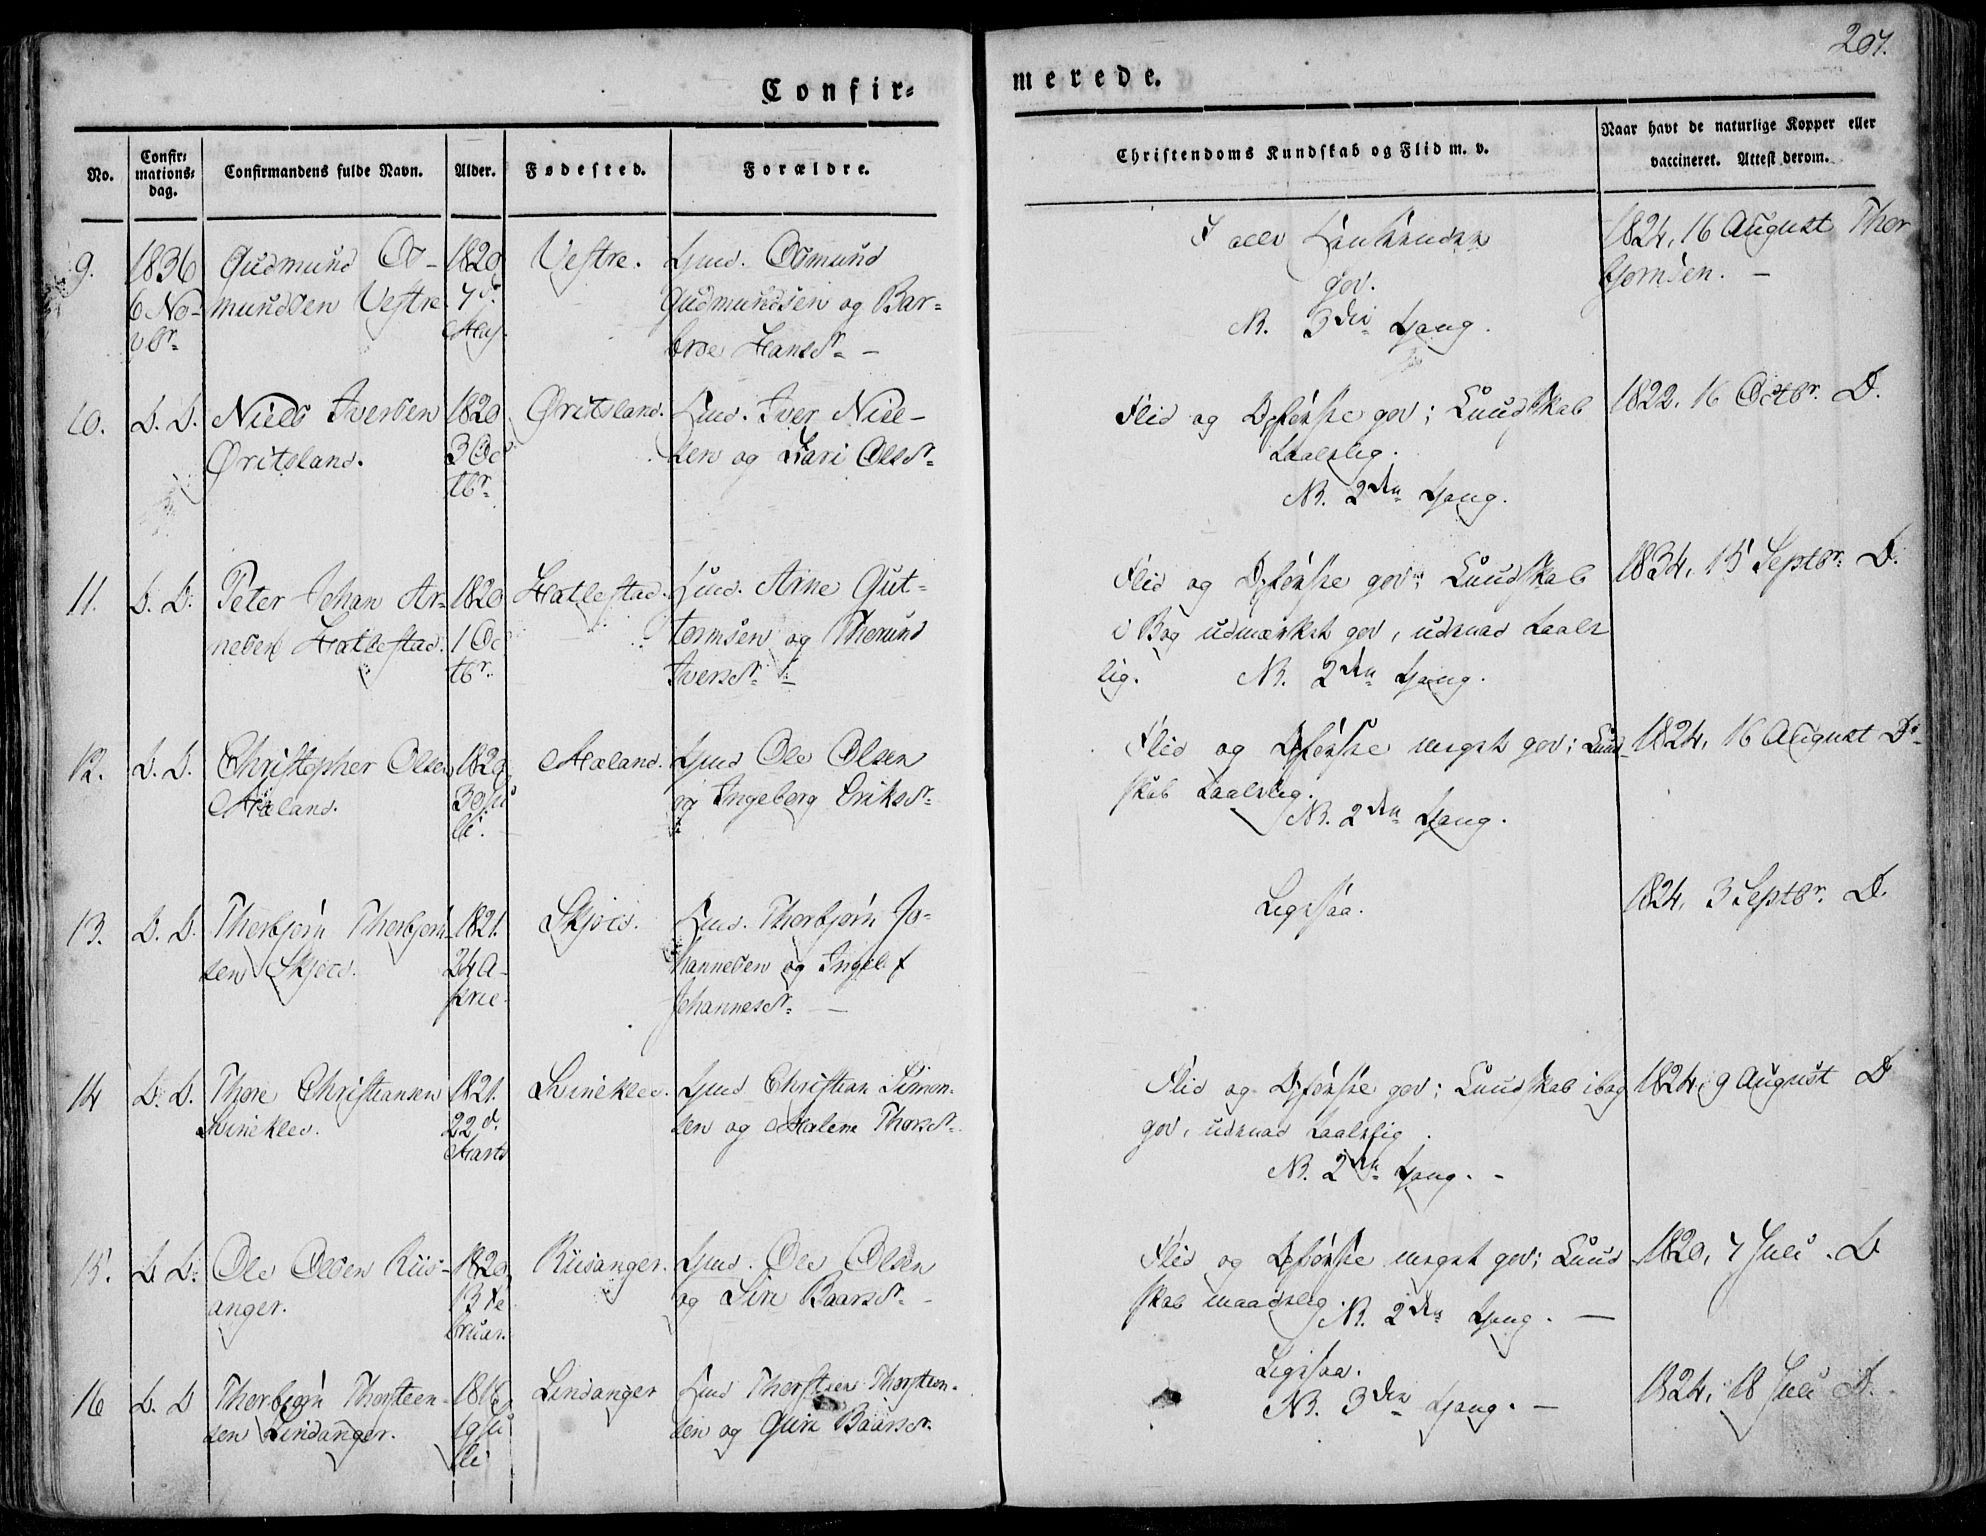 207.
Confir-
merede.
No.
Confir-
mations-
dag.
Confirmandens fulde Navn.
Alder.
Fødested.
Forældre.
Christendoms Kundskab og Flid m. v.
Naar havt de naturlige Kopper eller
vaccineret. Attest derom.
9.
1836
6 No-
vbr.
Gudmund Os-
mundsen Vestre
1820
7 d.
Maj.
Vestre.
Osmund
Gudmundsen og Bar-
broe Hansdr. -
I alle
god.
NB. 3die Gang.
1824, 16 August Thor
bjørnsen. -
10.
D. D.
Niels Iversen
Øritsland.
1820
3 Oc
tbr.
Øritsland.
Gmd. Iver Niel-
sen og Kari Olsdr.
Flid og Opførsel god; Kundskab
taalelig.
NB. 2den Gang.
1822. 16 Octbr. D.
11.
D. D.
Peter Johan Ar-
nesen Hatlestad.
1820
1 Oc
tbr.
Hatlestad.
Arne Gut-
tormsen og Thorund
Iversdr. -
Flid og Opførsel god; Kundskab
i Bog udmærket god, udenad taale
lig. NB. 2den Gang.
1834, 15 Septbr. D.
12.
D. D.
Christopher Olsen
Mæland.
1820
30 Ju
li.
Mæland.
Gmd Ole Olsen
og Ingeborg Eriksdr.
Flid og Opførsel meget god; Kund-
skab taalelig.
NB. 2den Gang.
1824, 16 August D.
13.
D. D.
Thorbjørn Thorbjørn-
sen Skjoes.
1821.
24 A-
pril.
Skjoes.
Thorbjørn Jo-
hannesen og Ingel.
Johannesdr. -
Ligesaa.
1824, 3 Septbr. D.
14
D. D.
Thore Christiansen
Svineklev.
1821.
22 d.
Marts
Svineklev.
Gmd Christian Simon-
sen og Malene Thorsdr.
Flid og Opførsel god; Kundskab i bog
god, udenad taalelig.
NB. 2den Gang. -
1824, 9 August D
15.
D. D.
Ole Olsen Riis-
anger.
1820
13 Fe
bruar.
Riisanger.
Gmd. Ole Olsen
og Siri Baarsdr. -
Flid og Opførsel meget god; Kund
skab maadelig.
NB. 2den Gang. -
1820, 7 Juli. D
16
D. D
Thorbjørn Thorsteen-
sen Lindanger.
1818
19 Ju
li
Lindanger
Thorsteen Thorsteen-
sen og Guri Baarsdr.
Ligesaa.
NB. 3die Gang. -
1824, 18 Juli D.